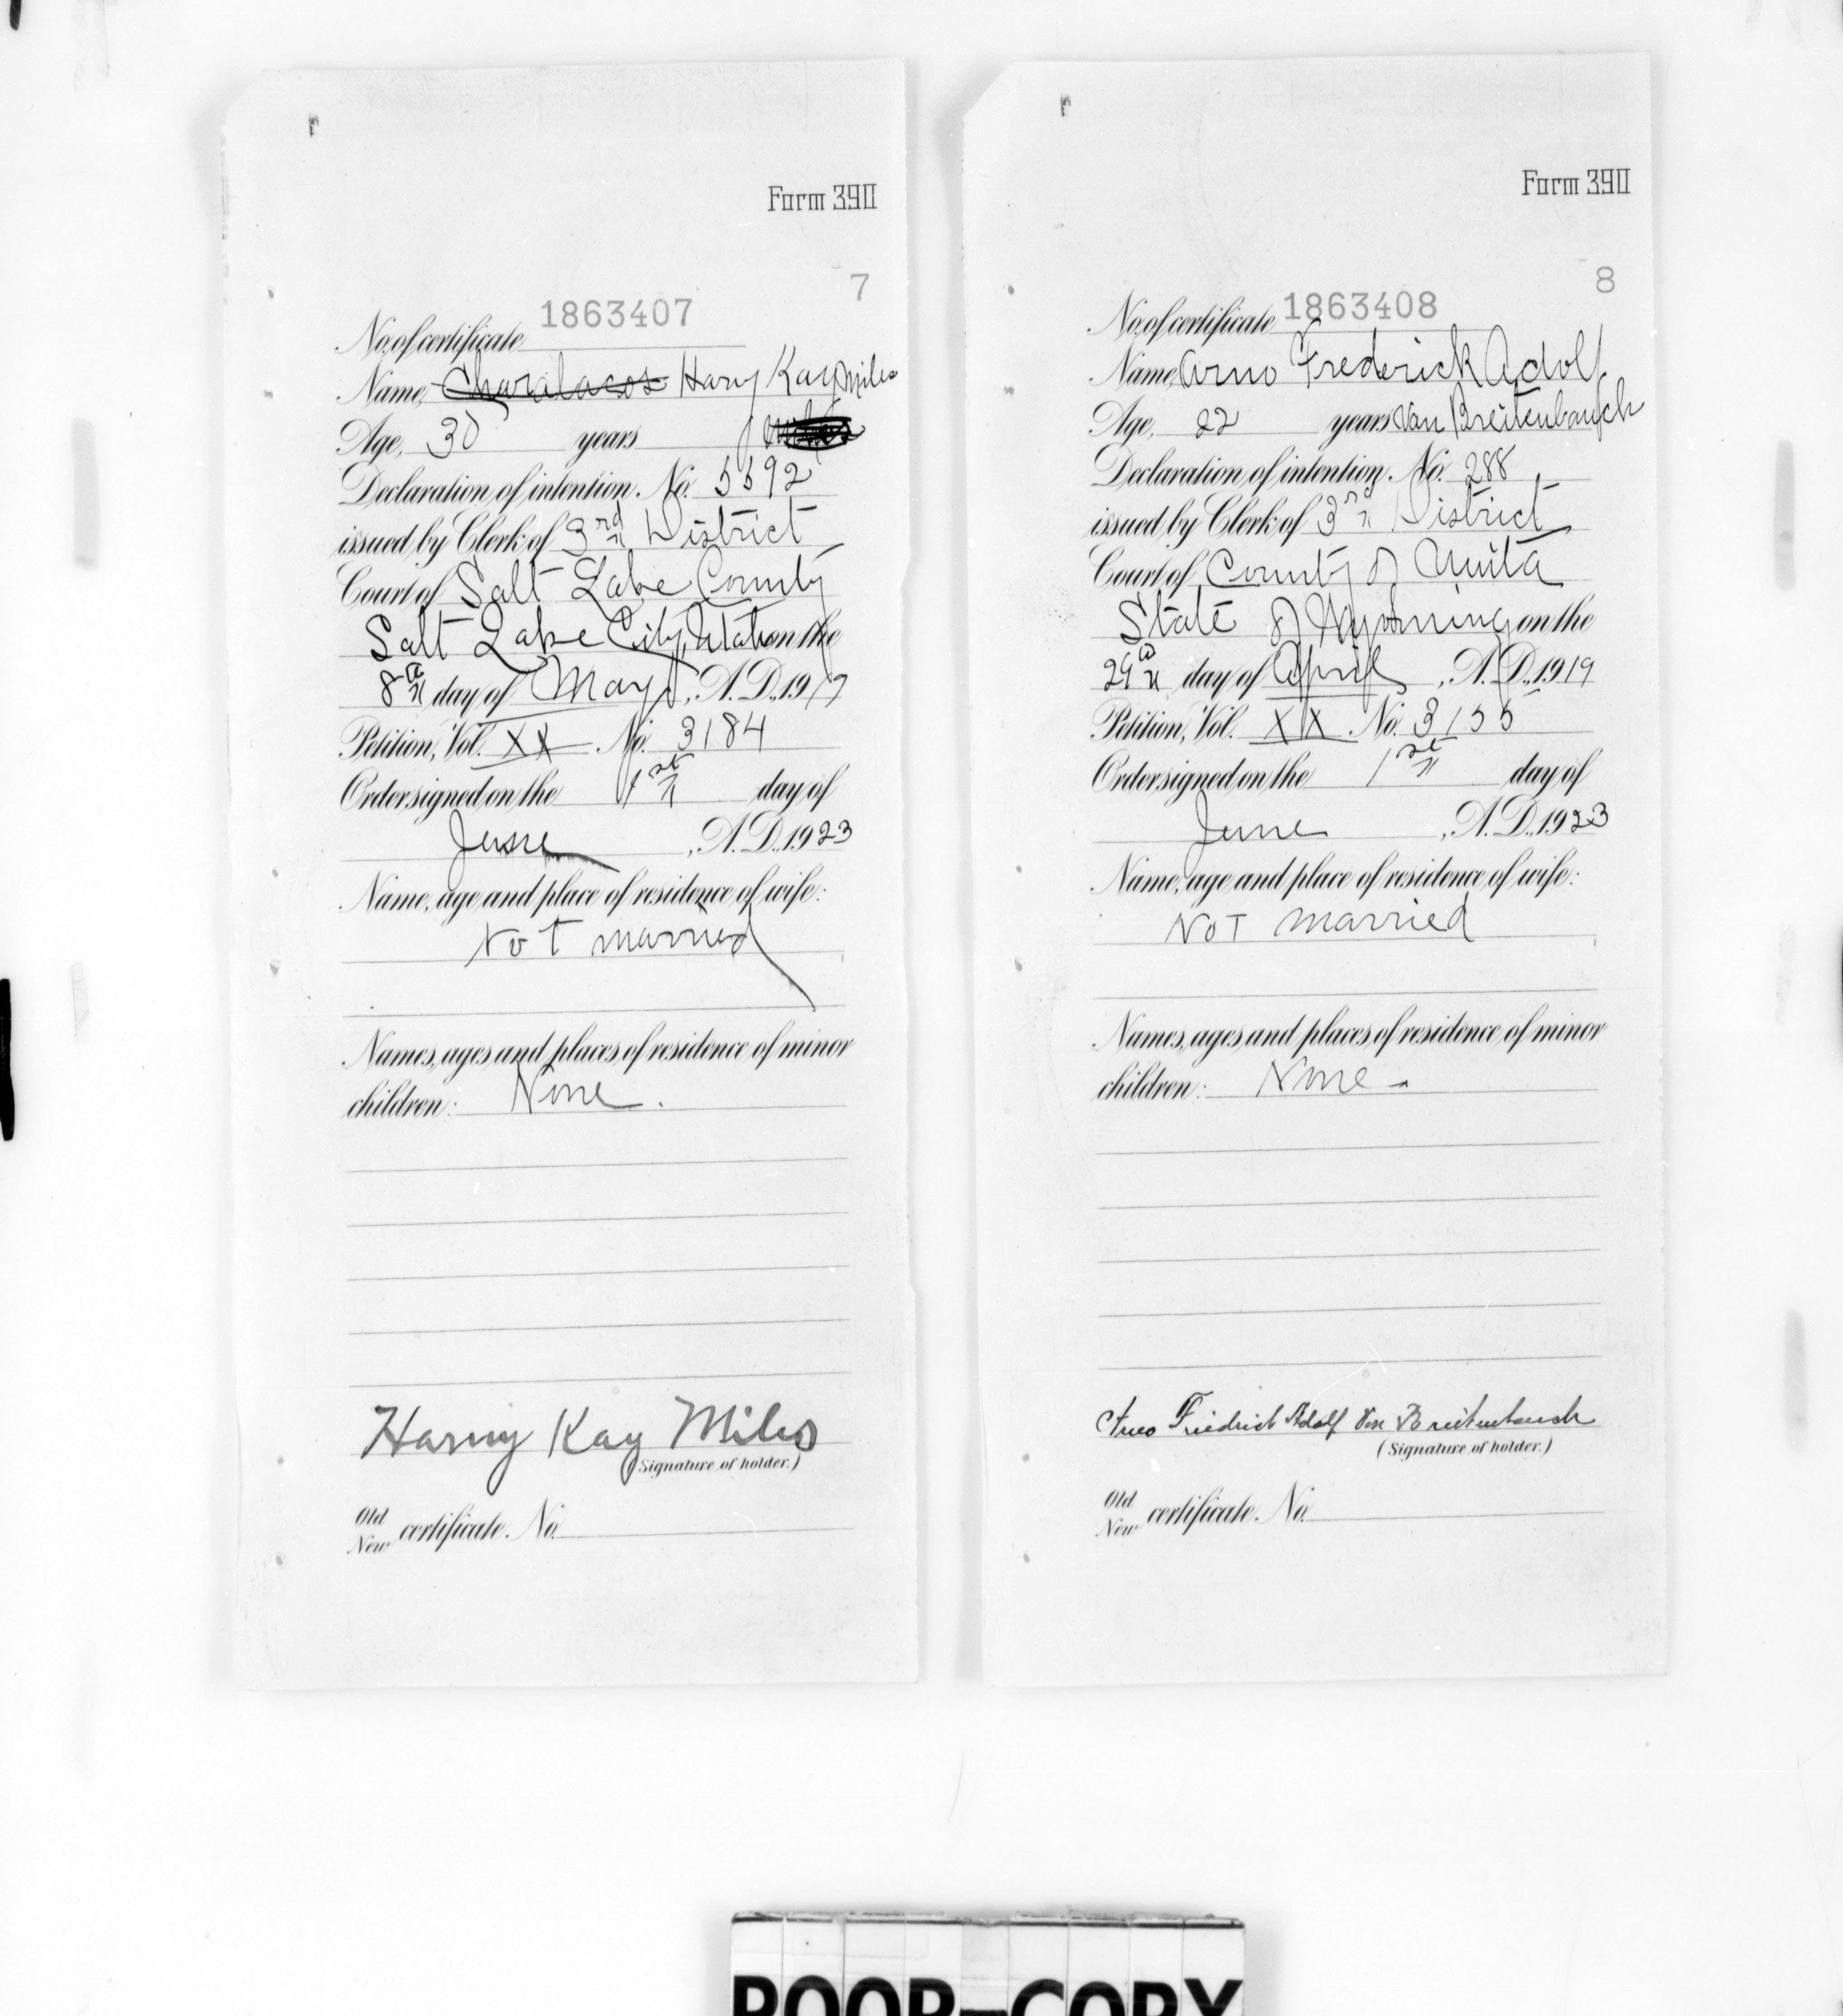 Form 390
7
No. of certificate 1863407
Name, Charalacos Harry Kay Miles
Age, 30 years
Declaration of intention. No. 5592
issued by Clerk of 3rd District
Court of Salt Lake County
Salt Lake City, Utah on the
8th day of May, A.D., 1917
Petition, Vol. XX No. 3184
Order signed on the 1st day of
June, A.D., 1923
Name, age and place of residence of wife:
Not married
Names, ages and places of residence of minor
children: None.
Harry Kay Miles
(Signature of holder.)
Old
New certificate. No.
Form 390
8
No. of certificate 1863408
Name, Arno Frederick Adolf
Age, 22 years Van Breitenbauch
Declaration of intention. No. 288
issued by Clerk of 3rd District
Court of County of Iunita
State of Wyoming on the
29th day of April, A.D., 1919
Petition, Vol. XX No. 3155
Order signed on the 1st day of
June, A.D., 1923
Name, age and place of residence of wife:
Not married
Names, ages and places of residence of minor
children: None.
Arno Friedrich Adolf Von Breitenbauch
(Signature of holder.)
Old
New certificate. No.
POOR COPY